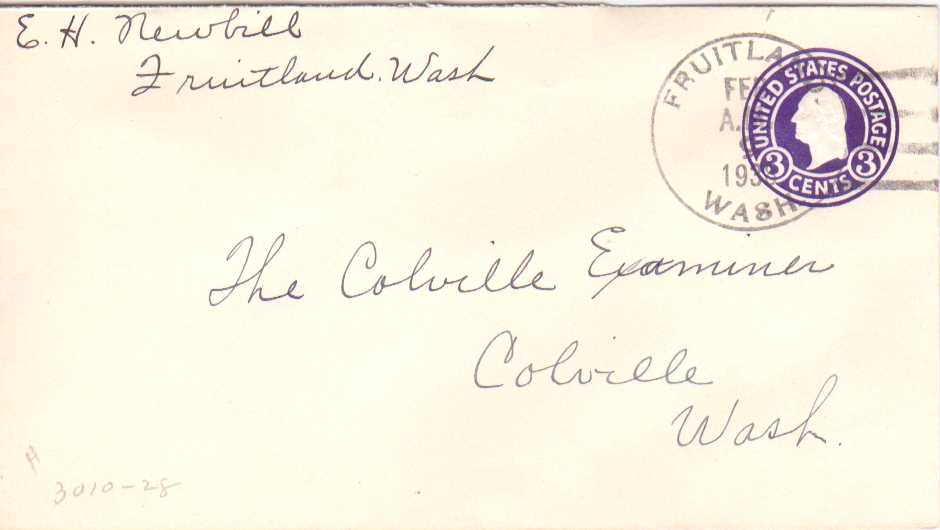 E. H. Newbill
Fruitland, Wash
FRUITLA
FE
A.
193
WASH
UNITED STATES POSTAGE
3 3
CENTS
The Colville Examiner
Colville
Wash.
H
3010-28